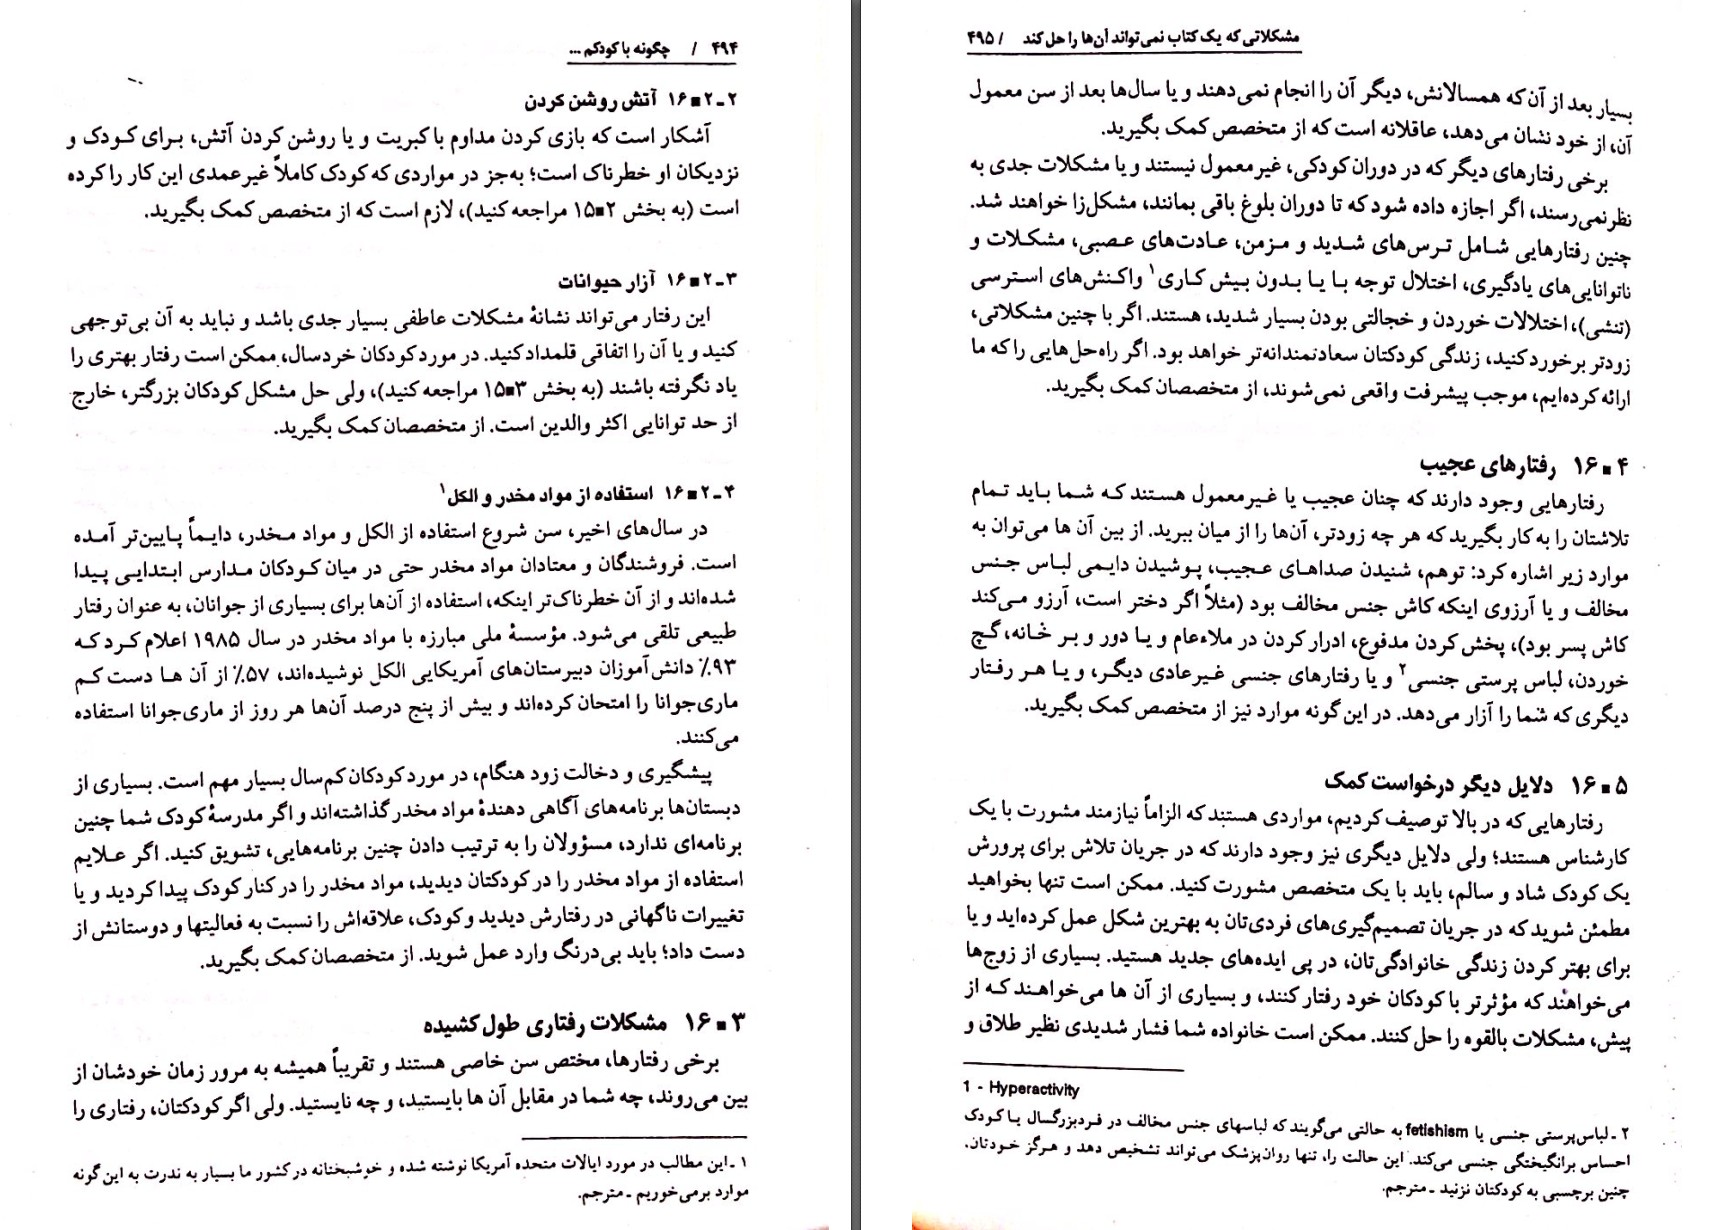 ۴۹۴ / چگونه با کودکم ...
۲ـ۲■۱۶ آتش روشن کردن
آشکار است که بازی کردن مداوم با کبریت و یا روشن کردن آتش، برای کودک و
نزدیکان او خطرناک است؛ به‌جز در مواردی که کودک کاملاً غیرعمدی این کار را کرده
است (به بخش ۲■۱۵ مراجعه کنید)، لازم است که از متخصص کمک بگیرید.
۳ـ۲■۱۶ آزار حیوانات
این رفتار می‌تواند نشانهٔ مشکلات عاطفی بسیار جدی باشد و نباید به آن بی‌توجهی
کنید و یا آن را اتفاقی قلمداد کنید. در مورد کودکان خردسال، ممکن است رفتار بهتری را
یاد نگرفته باشند (به بخش ۳■۱۵ مراجعه کنید)، ولی حل مشکل کودکان بزرگتر، خارج
از حد توانایی اکثر والدین است. از متخصصان کمک بگیرید.
۴ـ۲■۱۶ استفاده از مواد مخدر و الکل۱
در سال‌های اخیر، سن شروع استفاده از الکل و مواد مخدر، دایماً پایین‌تر آمده
است. فروشندگان و معتادان مواد مخدر حتی در میان کودکان مدارس ابتدایی پیدا
شده‌اند و از آن خطرناک‌تر اینکه، استفاده از آن‌ها برای بسیاری از جوانان، به عنوان رفتار
طبیعی تلقی می‌شود. مؤسسهٔ ملی مبارزه با مواد مخدر در سال ۱۹۸۵ اعلام کرد که
۹۳٪ دانش‌آموزان دبیرستان‌های آمریکایی الکل نوشیده‌اند، ۵۷٪ از آن ها دست کم
ماری‌جوانا را امتحان کرده‌اند و بیش از پنج درصد آن‌ها هر روز از ماری‌جوانا استفاده
می‌کنند.
پیشگیری و دخالت زود هنگام، در مورد کودکان کم‌سال بسیار مهم است. بسیاری از
دبستان‌ها برنامه‌های آگاهی دهندهٔ مواد مخدر گذاشته‌اند و اگر مدرسهٔ کودک شما چنین
برنامه‌ای ندارد، مسؤولان را به ترتیب دادن چنین برنامه‌هایی، تشویق کنید. اگر علایم
استفاده از مواد مخدر را در کودکتان دیدید، مواد مخدر را در کنار کودک پیدا کردید و یا
تغییرات ناگهانی در رفتارش دیدید و کودک، علاقه‌اش را نسبت به فعالیتها و دوستانش از
دست داد؛ باید بی‌درنگ وارد عمل شوید. از متخصصان کمک بگیرید.
۳■۱۶ مشکلات رفتاری طول کشیده
برخی رفتارها، مختص سن خاصی هستند و تقریباً همیشه به مرور زمان خودشان از
بین می‌روند، چه شما در مقابل آن ها بایستید، و چه نایستید. ولی اگر کودکتان، رفتاری را
۱ ـ این مطالب در مورد ایالات متحده آمریکا نوشته شده و خوشبختانه در کشور ما بسیار به ندرت به این گونه
موارد برمی‌خوریم ـ مترجم.
مشکلاتی که یک کتاب نمی‌تواند آن‌ها را حل کند / ۴۹۵
بسیار بعد از آن که همسالانش، دیگر آن را انجام نمی‌دهند و یا سال‌ها بعد از سن معمول
آن، از خود نشان می‌دهد، عاقلانه است که از متخصص کمک بگیرید.
برخی رفتارهای دیگر که در دوران کودکی، غیرمعمول نیستند و یا مشکلات جدی به
نظر نمی‌رسند، اگر اجازه داده شود که تا دوران بلوغ باقی بمانند، مشکل‌زا خواهند شد.
چنین رفتارهایی شامل ترس‌های شدید و مزمن، عادت‌های عصبی، مشکلات و
ناتوانایی‌های یادگیری، اختلال توجه با یا بدون بیش کاری۱ واکنش‌های استرسی
(تنشی)، اختلالات خوردن و خجالتی بودن بسیار شدید، هستند. اگر با چنین مشکلاتی،
زودتر برخورد کنید، زندگی کودکتان سعادتمندانه‌تر خواهد بود. اگر راه‌حل‌هایی را که ما
ارائه کرده‌ایم، موجب پیشرفت واقعی نمی‌شوند، از متخصصان کمک بگیرید.
۴■۱۶ رفتارهای عجیب
رفتارهایی وجود دارند که چنان عجیب یا غیرمعمول هستند که شما باید تمام
تلاشتان را به کار بگیرید که هر چه زودتر، آن‌ها را از میان ببرید. از بین آن ها می‌توان به
موارد زیر اشاره کرد: توهم، شنیدن صداهای عجیب، پوشیدن دایمی لباس جنس
مخالف و یا آرزوی اینکه کاش جنس مخالف بود (مثلاً اگر دختر است، آرزو می‌کند
کاش پسر بود)، پخش کردن مدفوع، ادرار کردن در ملاءعام و یا دور و بر خانه، گچ
خوردن، لباس پرستی جنسی۲ و یا رفتارهای جنسی غیرعادی دیگر، و یا هر رفتار
دیگری که شما را آزار می‌دهد. در این گونه موارد نیز از متخصص کمک بگیرید.
۵■۱۶ دلایل دیگر درخواست کمک
رفتارهایی که در بالا توصیف کردیم، مواردی هستند که الزاماً نیازمند مشورت با یک
کارشناس هستند؛ ولی دلایل دیگری نیز وجود دارند که در جریان تلاش برای پرورش
یک کودک شاد و سالم، باید با یک متخصص مشورت کنید. ممکن است تنها بخواهید
مطمئن شوید که در جریان تصمیم‌گیری‌های فردی‌تان به بهترین شکل عمل کرده‌اید و یا
برای بهتر کردن زندگی خانوادگی‌تان، در پی ایده‌های جدید هستید. بسیاری از زوج‌ها
می‌خواهند که مؤثرتر با کودکان خود رفتار کنند، و بسیاری از آن ها می‌خواهند که از
پیش، مشکلات بالقوه را حل کنند. ممکن است خانواده شما فشار شدیدی نظیر طلاق و
1 - Hyperactivity
۲ ـ لباس‌پرستی جنسی یا fetishism به حالتی می‌گویند که لباسهای جنس مخالف در فردبزرگسال یا کودک
احساس برانگیختگی جنسی می‌کند. این حالت را، تنها روان‌پزشک می‌تواند تشخیص دهد و هرگز خودتان،
چنین برچسبی به کودکتان نزنید ـ مترجم.